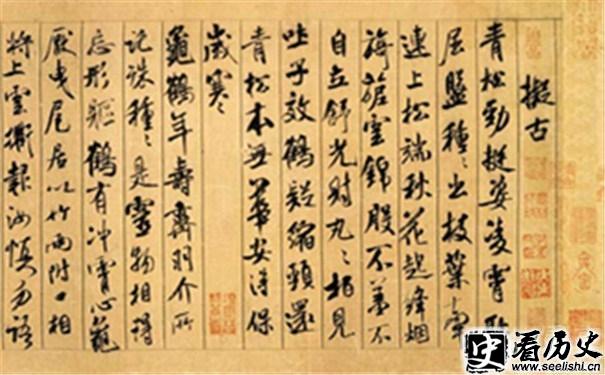 擬古
青松勁挺姿凌霄恥
屈盤種々出枝葉牽
連上松端秋花起絳烟
旖旎雲錦殷不羞不
自立舒光射丸々柏見
吐子效鶴疑縮頸還
青松本無華安得保
歲寒々
龜鶴年壽齊羽介所
託殊種々是靈物相得
忘形軀鶴有沖霄心龜
厭曳尾居以竹兩附口相
將上雲衢報汝慎勿語
史看历史
www.seelishi.cn